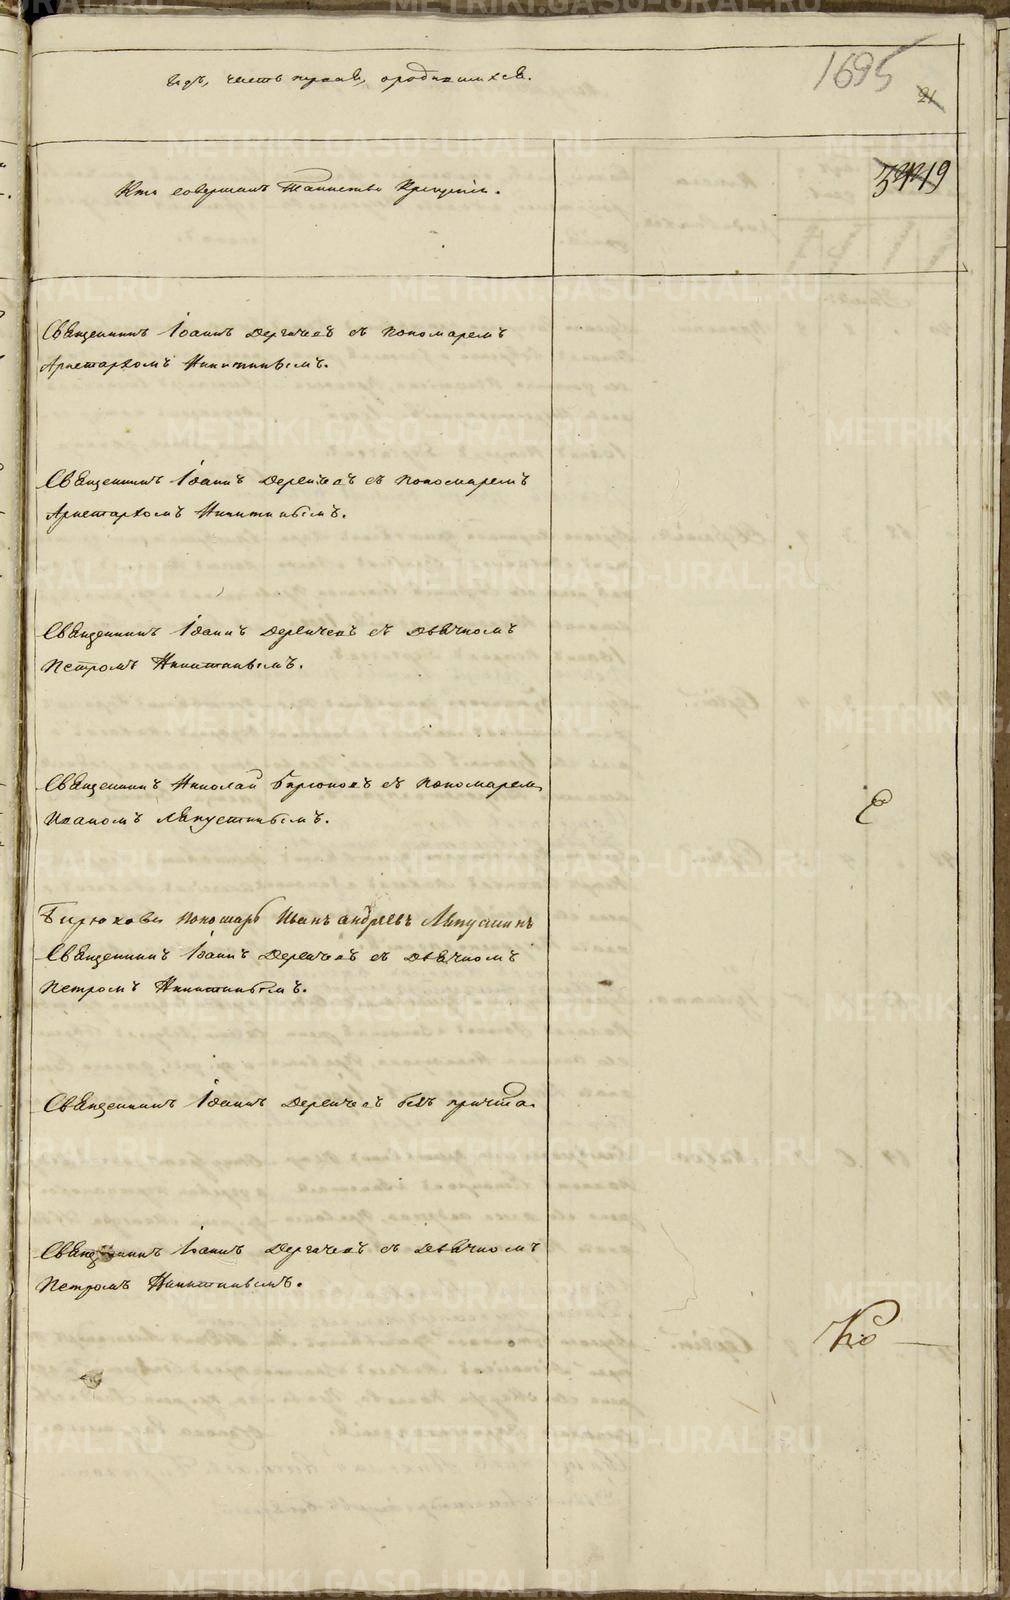 годъ, часть первая, о родившихся.
1695
21
Кто совершалъ Таинство Крещенія.
Священникъ Іоаннъ Дергачевъ съ пономаремъ
Аристархомъ Никитинымъ.
Священникъ Іоаннъ Дергачевъ съ пономаремъ
Аристархомъ Никитинымъ.
Священникъ Іоаннъ Дергачевъ съ дьячкомъ
Петромъ Никитинымъ.
Священникъ Николай Бирюковъ съ пономаремъ
Иваномъ Ляпустинымъ.
Бирюковъ пономарь Иванъ андреевъ Ляпустинъ
Священникъ Іоаннъ Дергачевъ съ дьячкомъ
Петромъ Никитинымъ.
Священникъ Іоаннъ Дергачевъ безъ причта.
Священникъ Іоаннъ Дергачевъ съ дьячкомъ
Петромъ Никитинымъ.
METRIKI.GASO-URAL.RU